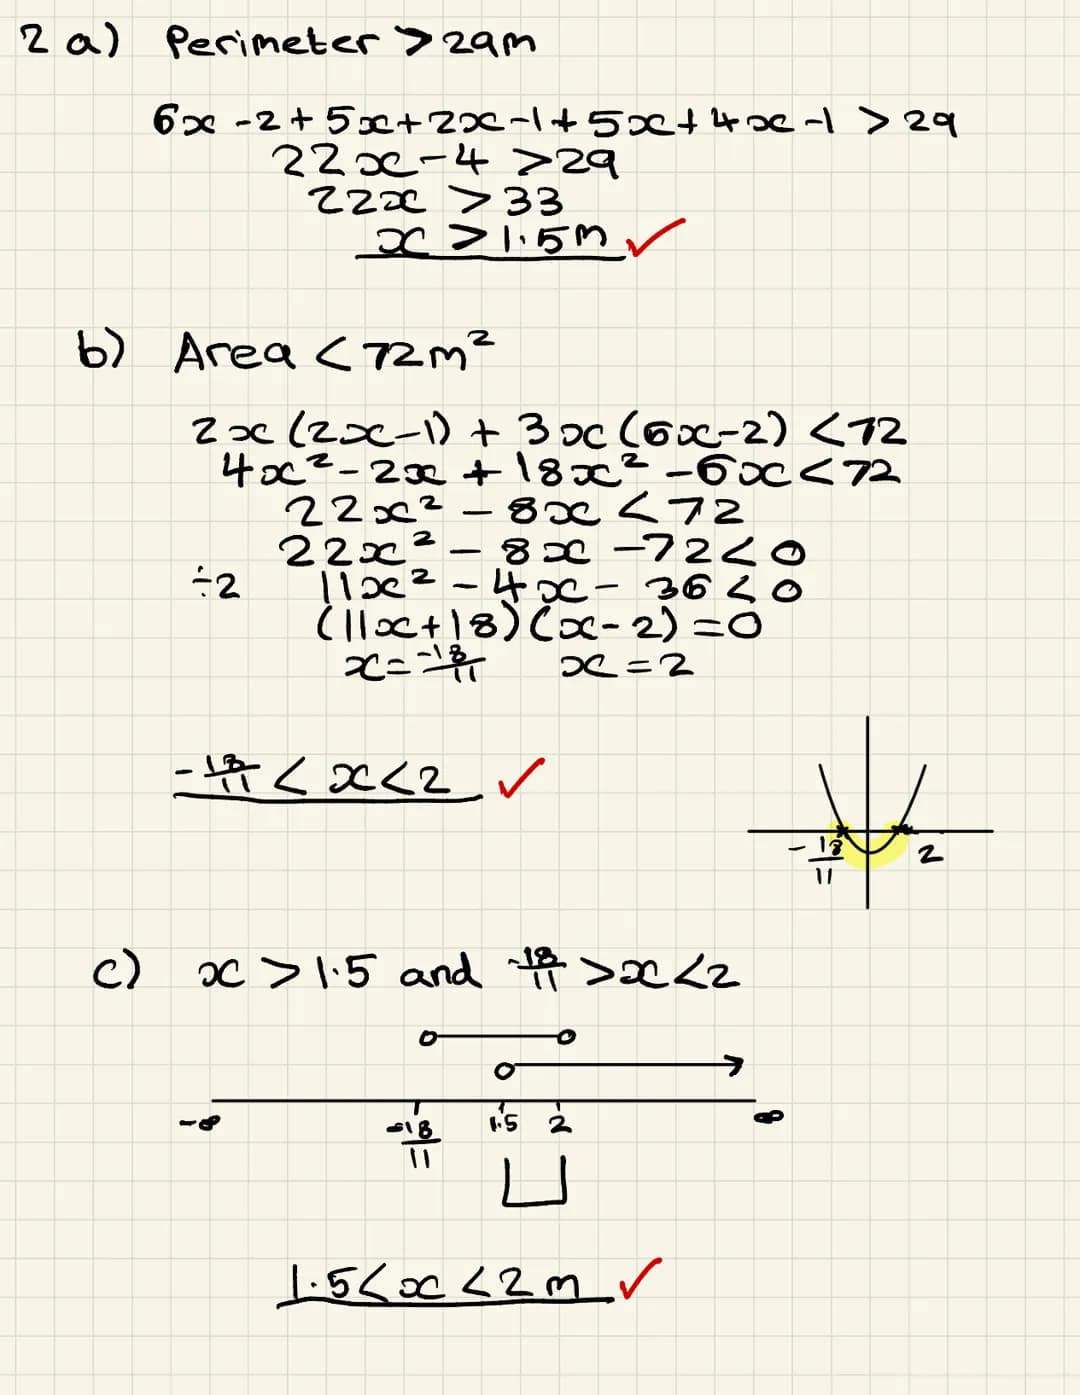 2 a) Perimeter > 29m
6x - 2 + 5x + 2x - 1 + 5x + 4x - 1 > 29
22x - 4 > 29
22x > 33
x > 1.5m ✓
b) Area < 72m²
2x(2x-1) + 3x(6x-2) < 72
4x² - 2x + 18x² - 6x < 72
22x² - 8x < 72
22x² - 8x - 72 < 0
÷2 11x² - 4x - 36 < 0
(11x+18)(x-2) = 0
x = -18/11 x = 2
-18/11 < x < 2 ✓
-18/11 2
c) x > 1.5 and -18/11 > x < 2
-∞ -18/11 1.5 2 ∞
1.5 < x < 2 m ✓